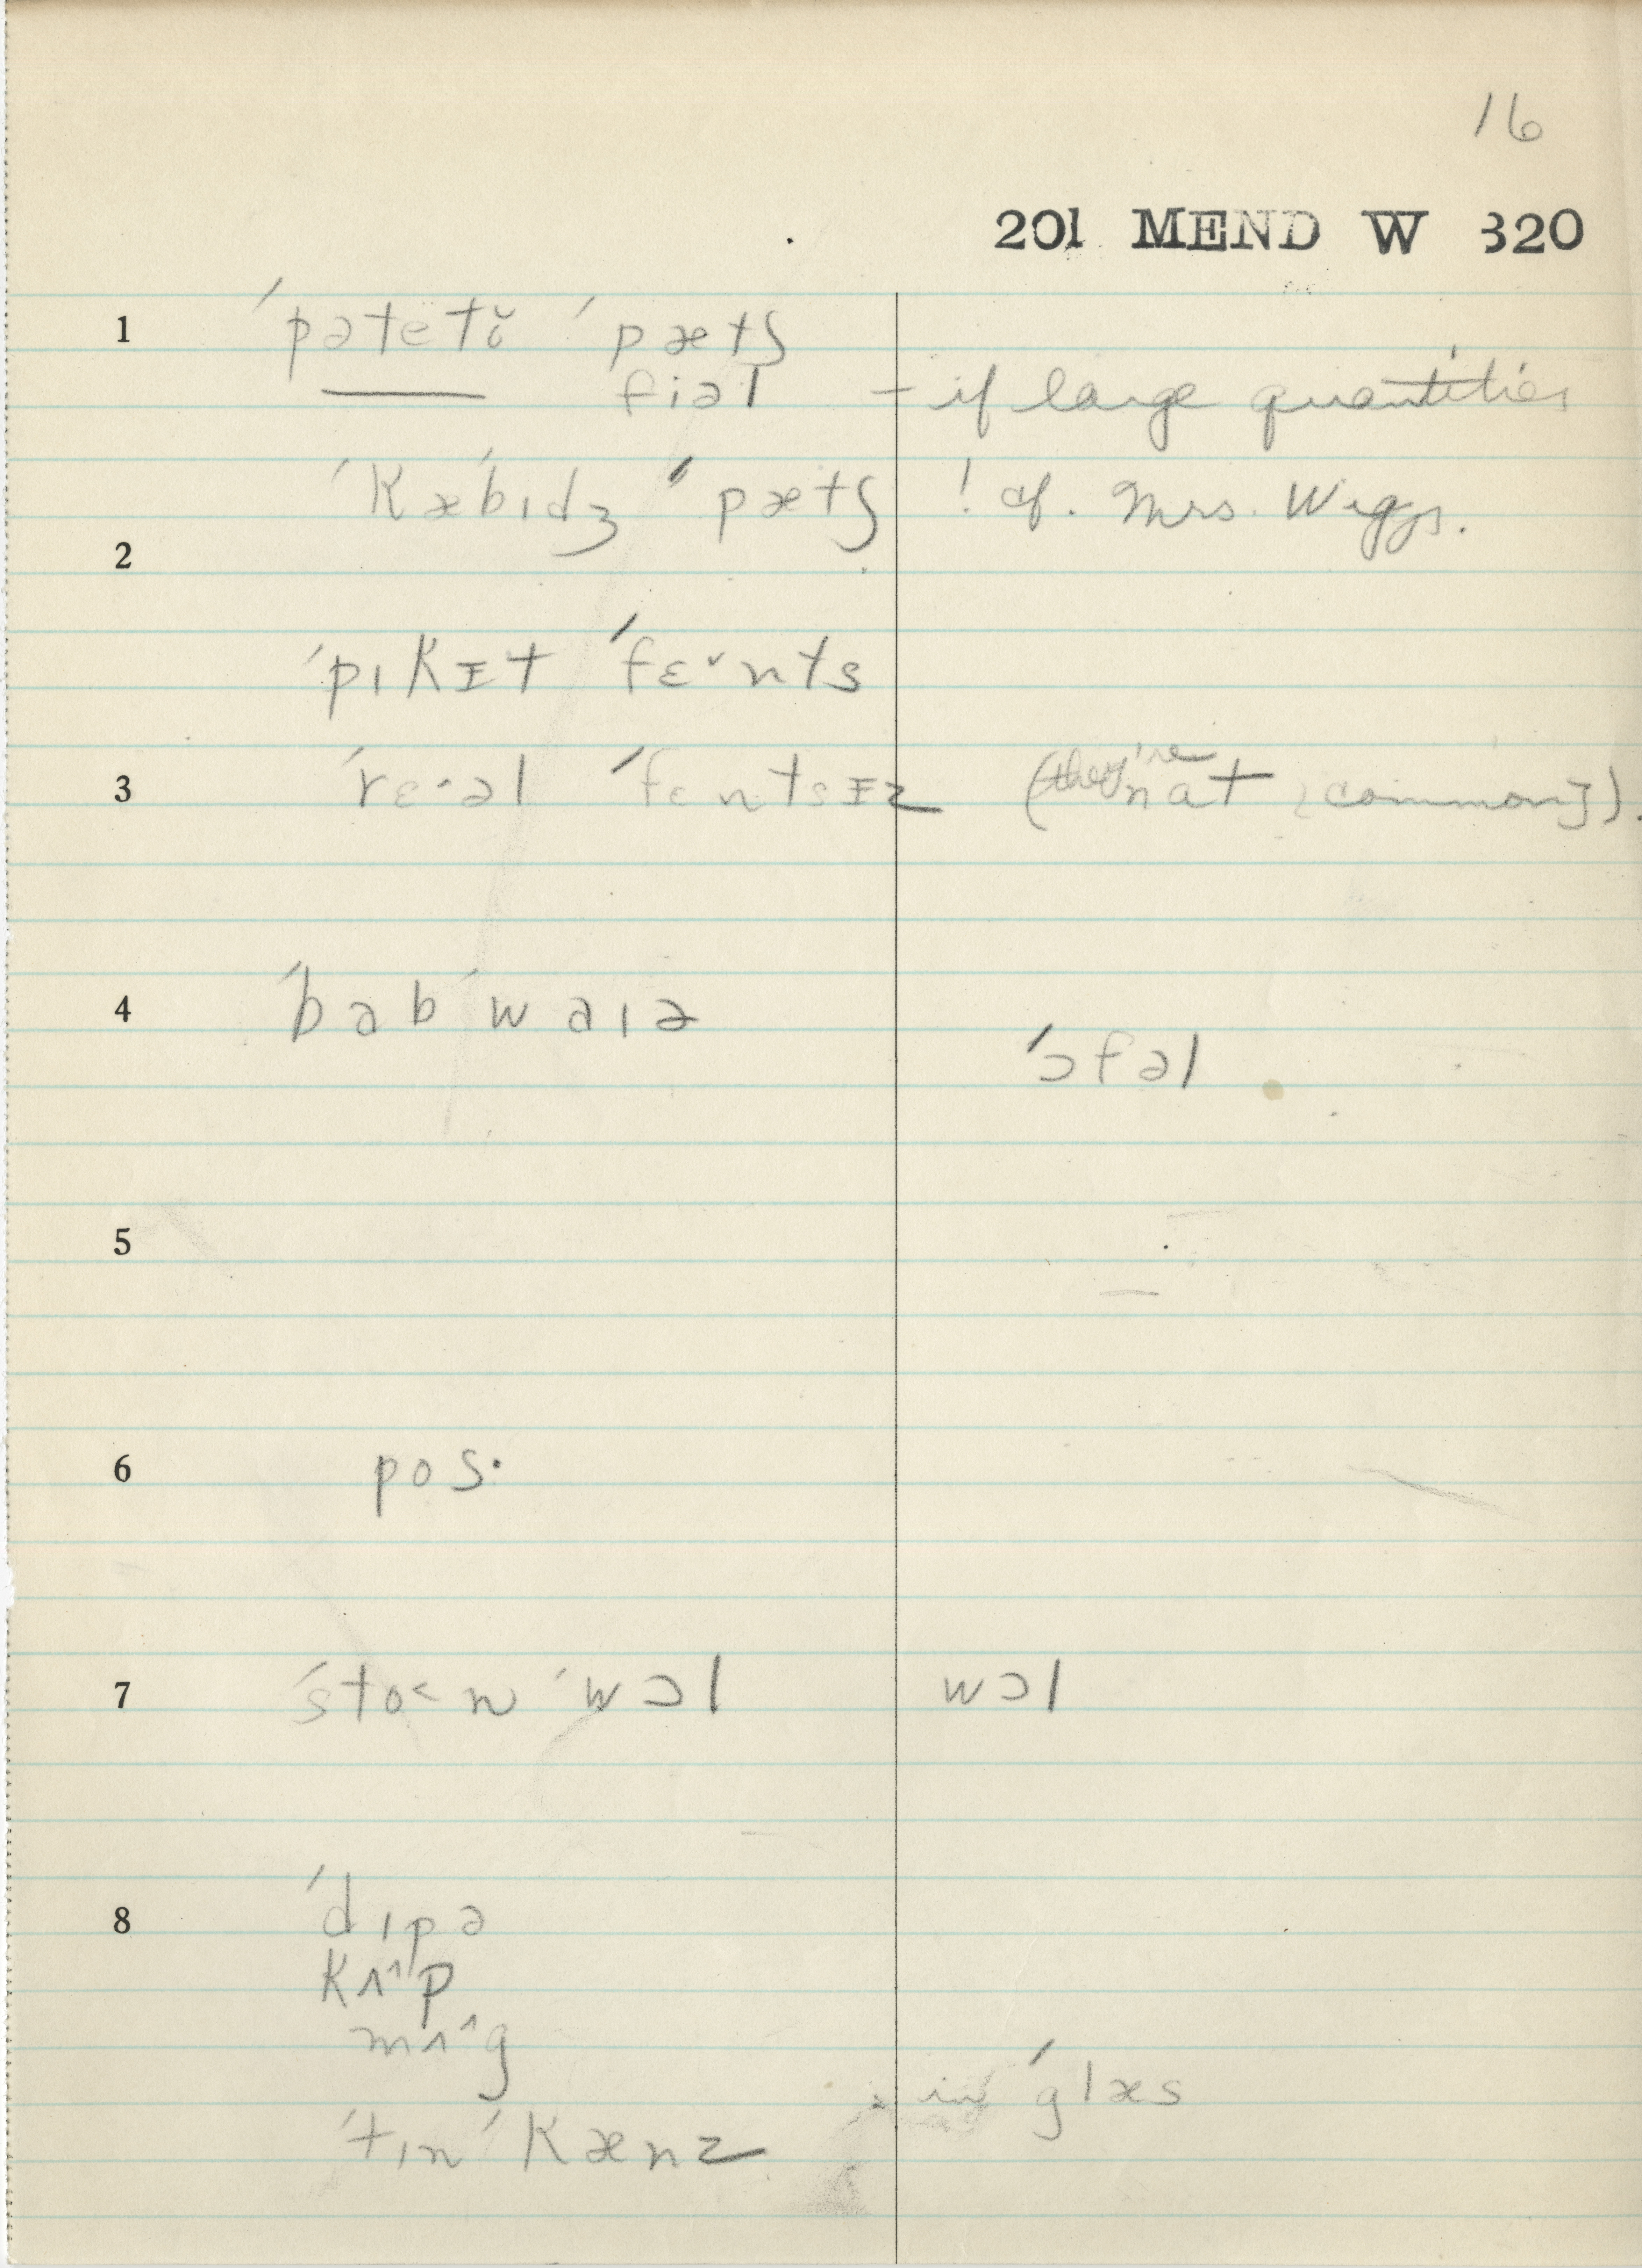 16
201 MEND W 320
1 ˈpətetə̆ ˈpætʃ
—— fiəl – if large quantities
ˈkæˈbɪdʒ ˈpætʃ ! cf. Mrs. Wiggs.
2
ˈpɪkɪt ˈfɛ˅nts
3 ˈrɛ·əl ˈfɛntsɪz (they're nat [common]).
4 ˈbabˈwaɪə
ˈɔfəl
5
6 pos·
7 ˈsto˂n ˈwɔl wɔl
8 ˈdɪpə
kʌ^p
mʌ^g
in ˈglæs
ˈtɪnˈkænz